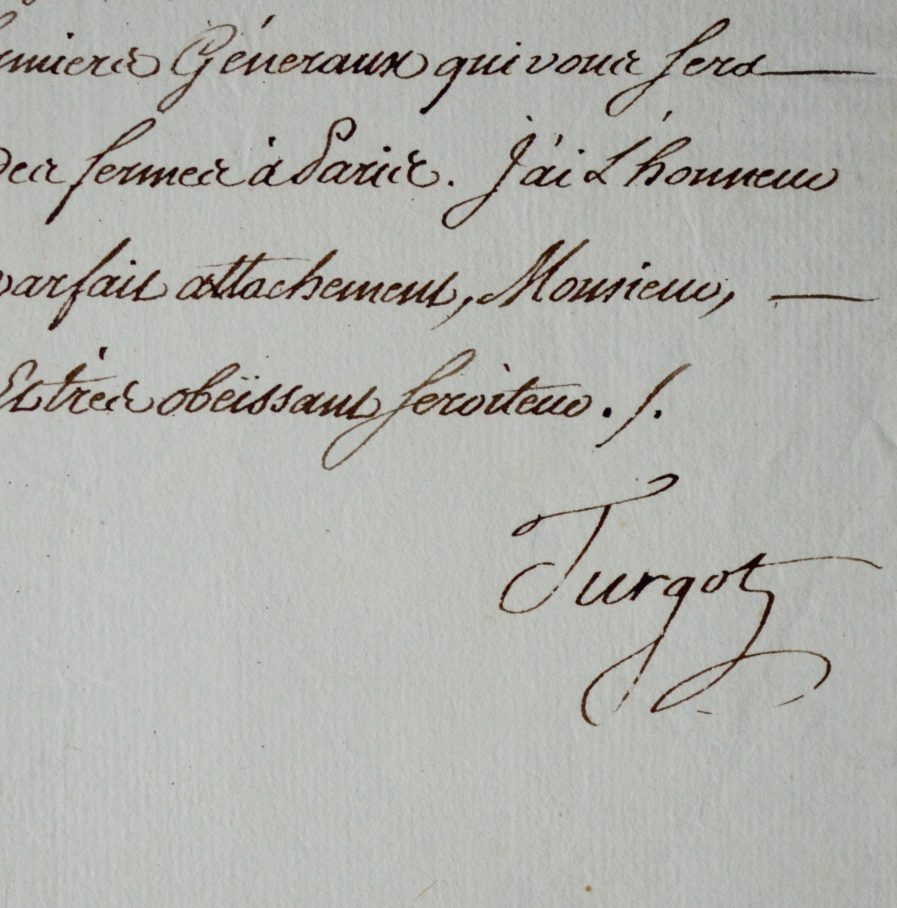 fermiers Généraux qui vous sera
des fermes à Paris. J'ai L'honneur
parfait attachement, Monsieur,
Et très obéissant serviteur ./.
Turgot